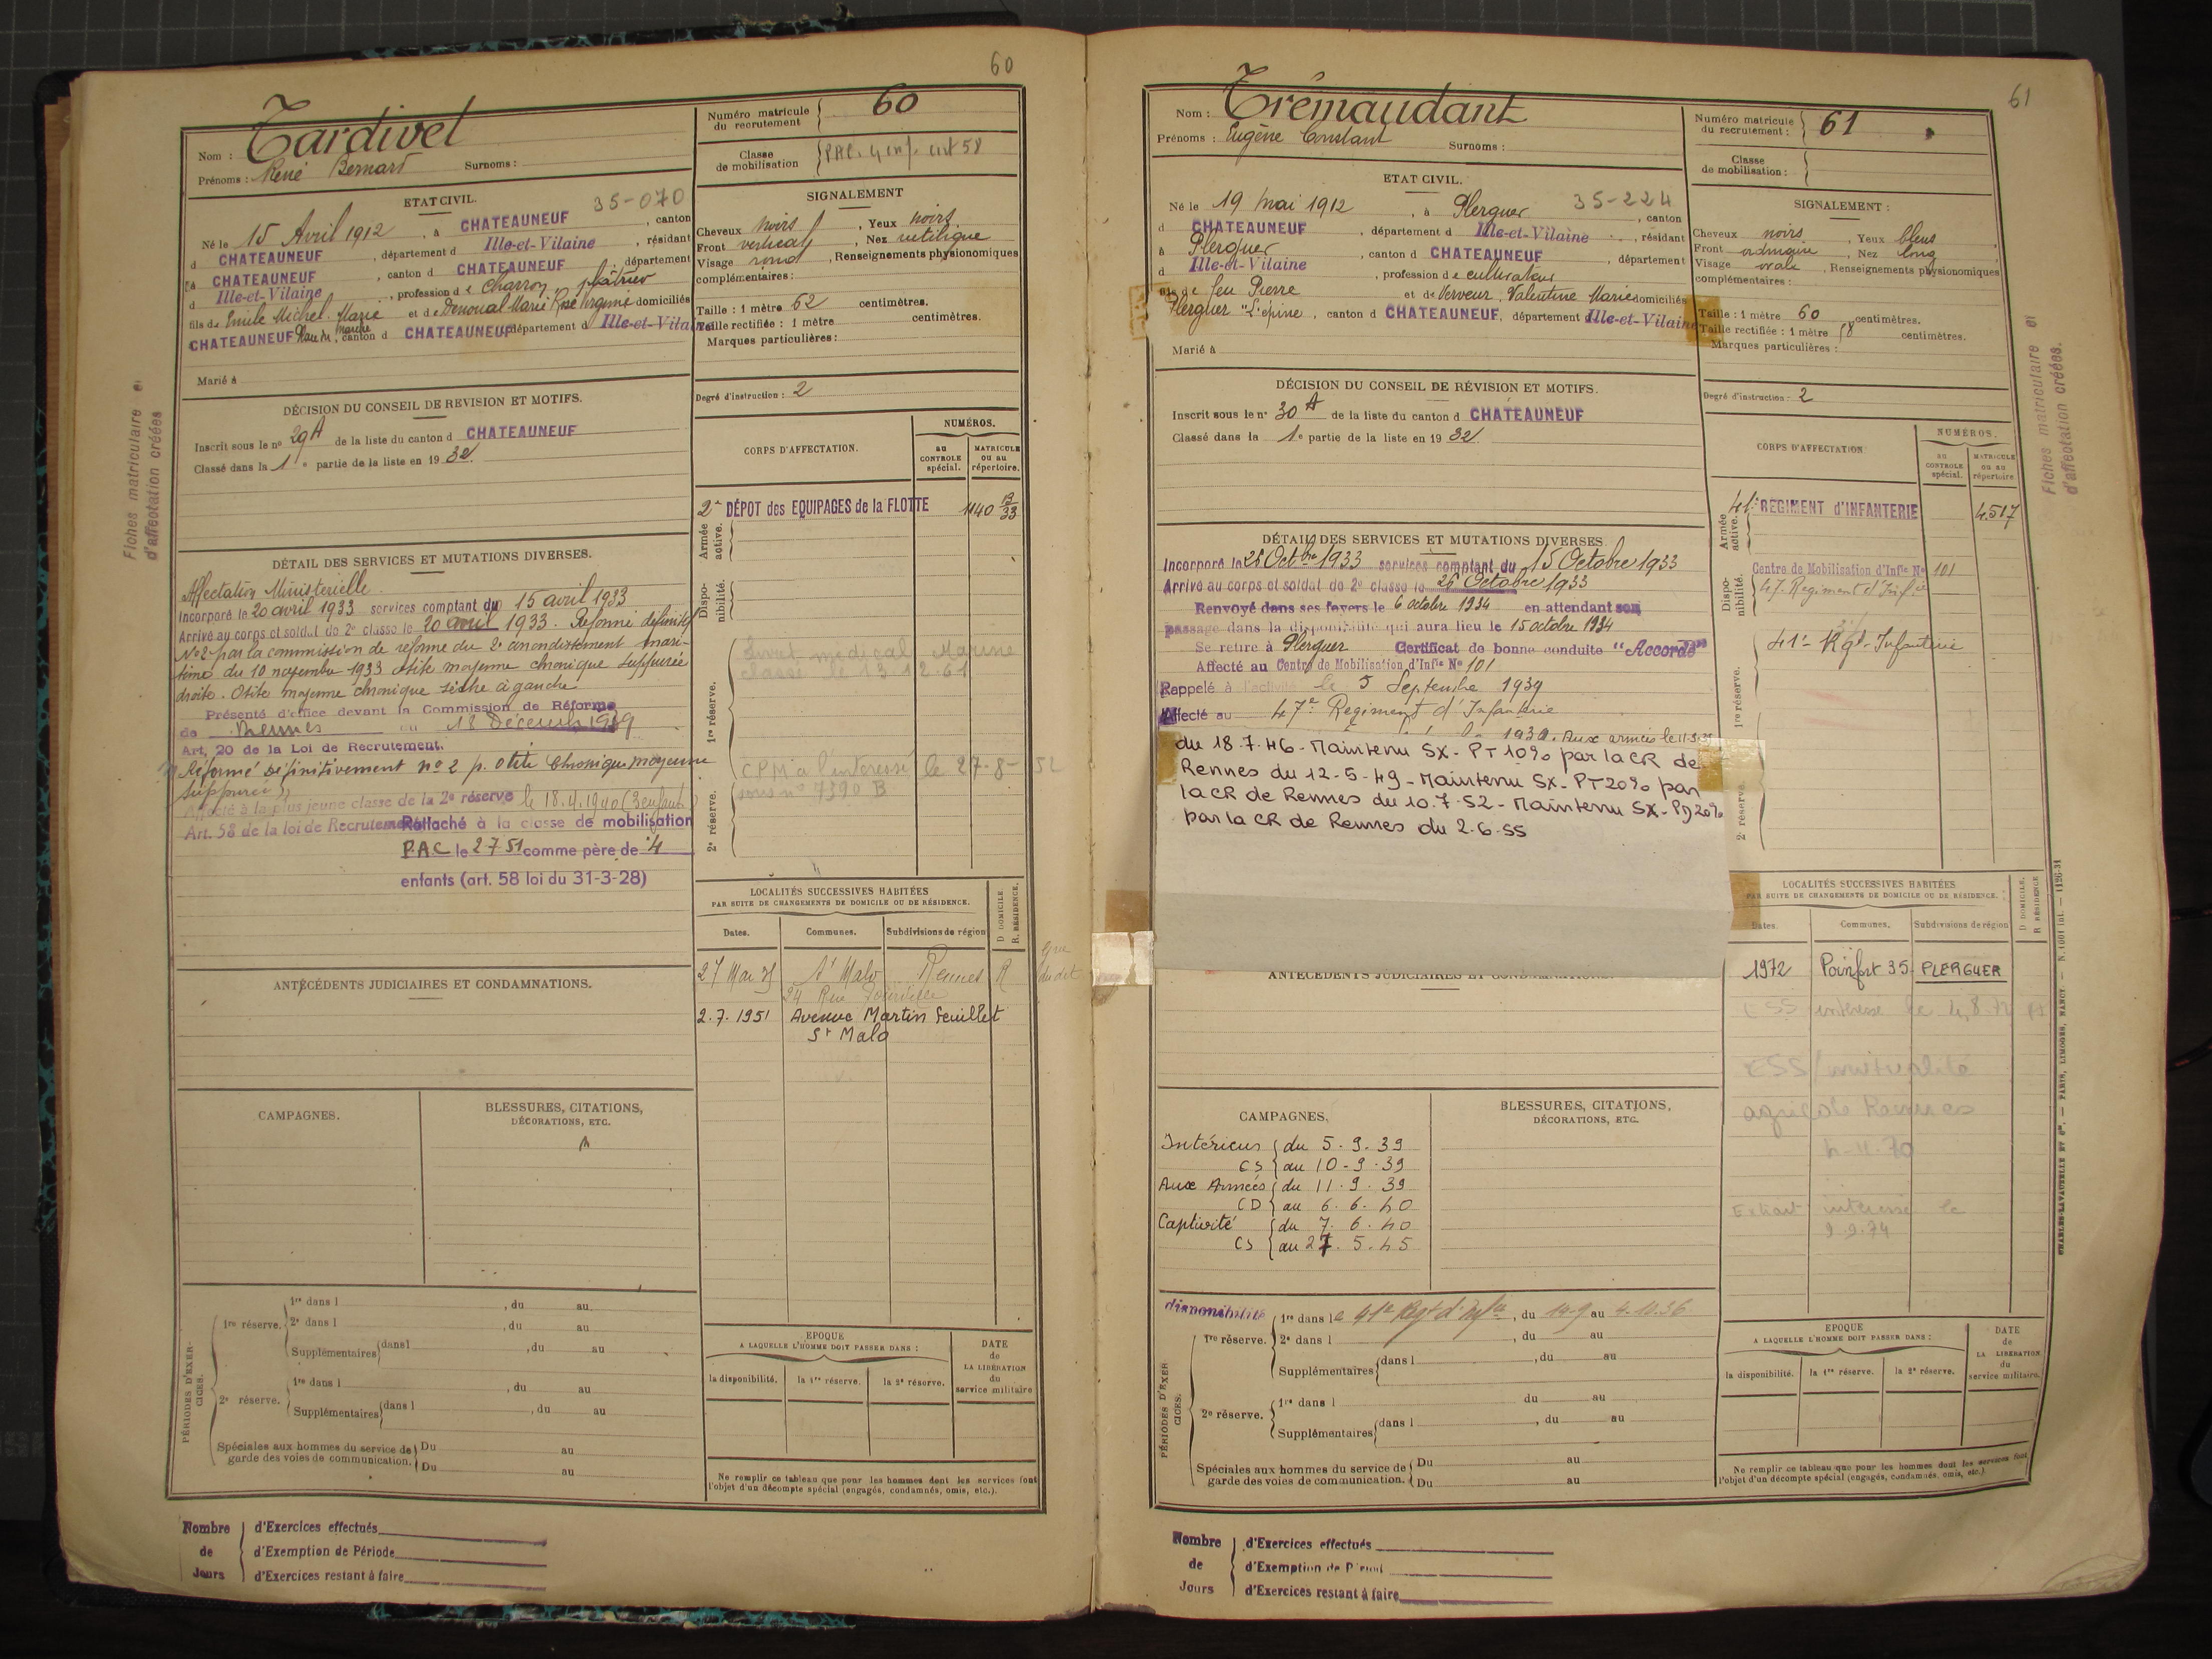 60
Nom : Tardivel
Prénoms : René Bernard Surnoms :
Numéro matricule du recrutement 60
Classe de mobilisation
ETAT CIVIL. 35-070
Né le 15 Avril 1912, à CHATEAUNEUF, canton
d CHATEAUNEUF, département d Ille-et-Vilaine, résidant
à CHATEAUNEUF, canton d CHATEAUNEUF, département
d Ille-et-Vilaine, profession de charron, plâtrier
fils de Emile Michel Marie et de Denoual Marie Rose Virginie domiciliés
CHATEAUNEUF, canton d CHATEAUNEUF département d Ille-et-Vilaine
Marié à
SIGNALEMENT
Cheveux noirs, Yeux noirs
Front vertical, Nez rectiligne
Visage rond, Renseignements physionomiques
complémentaires :
Taille : 1 mètre 62 centimètres.
Taille rectifiée : 1 mètre centimètres.
Marques particulières :
Degré d'instruction : 2
DÉCISION DU CONSEIL DE REVISION ET MOTIFS.
Inscrit sous le nº 29 A de la liste du canton d CHATEAUNEUF
Classé dans la 1e partie de la liste en 1932
Fiches matriculaire et
d'affectation créées
CORPS D'AFFECTATION.
NUMÉROS.
au CONTROLE spécial.
MATRICULE ou au répertoire.
Armée active.
2e DÉPOT des EQUIPAGES de la FLOTTE 1140
Disponibilité.
1re réserve.
Livret médical Marine
classé le 13.12.61
2e réserve.
CPM à l'intéressé le 27-8-52
sous nº 7590 B
DÉTAIL DES SERVICES ET MUTATIONS DIVERSES.
Affectation Ministérielle.
Incorporé le 20 avril 1933 services comptant du 15 avril 1933
Arrivé au corps et soldat de 2e classe le 20 avril 1933. Réformé définitif
Nº2 par la commission de réforme du 2e arrondissement mari-
time du 10 novembre 1933 otite moyenne chronique suppurée
droite. Otite moyenne chronique sèche à gauche
Présenté d'office devant la Commission de Réforme
de Rennes du 18 Décembre 1939
Art. 20 de la Loi de Recrutement.
Réformé définitivement nº 2 p. otite chronique moyenne
suppurée
Affecté à la plus jeune classe de la 2e réserve le 18.4.1940 (3 enfants)
Art. 58 de la loi de Recrutement
Rattaché à la classe de mobilisation
P.A.C le 2 7 51 comme père de 4
enfants (art. 58 loi du 31-3-28)
LOCALITÉS SUCCESSIVES HABITÉES
PAR SUITE DE CHANGEMENTS DE DOMICILE OU DE RÉSIDENCE.
D DOMICILE. R. RÉSIDENCE.
Dates. Communes. Subdivisions de région
St Malo Rennes R
24 Rue
2.7.1951 Avenue Martin Feuillet
St Malo
ANTÉCÉDENTS JUDICIAIRES ET CONDAMNATIONS.
CAMPAGNES.
BLESSURES, CITATIONS,
DÉCORATIONS, ETC.
PÉRIODES D'EXERCICES.
1re réserve. 1re dans l , du au
2e dans l , du au
Supplémentaires dans l , du au
2e réserve. 1re dans l , du au
Supplémentaires dans l , du au
Spéciales aux hommes du service de Du au
garde des voies de communication. Du au
EPOQUE
A LAQUELLE L'HOMME DOIT PASSER DANS :
la disponibilité. la 1re réserve. la 2e réserve.
DATE de LA LIBÉRATION du service militaire
Ne remplir ce tableau que pour les hommes dont les services font
l'objet d'un décompte spécial (engagés, condamnés, omis, etc.).
Nombre de Jours
d'Exercices effectués
d'Exemption de Période
d'Exercices restant à faire
61
Nom : Trémaudant
Prénoms : Eugène Constant Surnoms :
Numéro matricule du recrutement : 61
Classe de mobilisation :
ETAT CIVIL.
Né le 19 mai 1912, à Plerguer 35-224, canton
d CHATEAUNEUF, département d Ille-et-Vilaine, résidant
à Plerguer, canton d CHATEAUNEUF, département
d Ille-et-Vilaine, profession de cultivateur
fils de feu Pierre et de Verveur, Valentine Marie domiciliés
Plerguer "L'épine, canton d CHATEAUNEUF, département d Ille-et-Vilaine
Marié à
SIGNALEMENT :
Cheveux noirs, Yeux bleus
Front ordinaire, Nez long
Visage ovale, Renseignements physionomiques
complémentaires :
Taille : 1 mètre 60 centimètres.
Taille rectifiée : 1 mètre 58 centimètres.
Marques particulières :
Degré d'instruction : 2
DÉCISION DU CONSEIL DE RÉVISION ET MOTIFS.
Inscrit sous le nº 30 A de la liste du canton d CHATEAUNEUF
Classé dans la 1e partie de la liste en 1932
Fiches matriculaire et
d'affectation créées.
CORPS D'AFFECTATION
NUMÉROS.
AU CONTROLE spécial.
MATRICULE ou au répertoire.
Armée active.
41e REGIMENT d'INFANTERIE 4517
Disponibilité.
Centre de Mobilisation d'Infie Nº 101
47e Regiment d'Infie
1re réserve.
41e Rgt Infanterie
2e réserve.
DÉTAIL DES SERVICES ET MUTATIONS DIVERSES.
Incorporé le 26 Octbre 1933 services comptant du 15 Octobre 1933
Arrivé au corps et soldat de 2e classe le 26 Octobre 1933
Renvoyé dans ses foyers le 6 octobre 1934 en attendant son
passage dans la disponibilité qui aura lieu le 15 octobre 1934
Se retire à Plerguer Certificat de bonne conduite "Accordé"
Affecté au Centre de Mobilisation d'Infie Nº 101
Rappelé à l'activité le 5 Septembre 1939
Affecté au 47e Régiment d'Infanterie
Aux armées le 11.9.39
du 18.7.46 - Maintenu SX - PT 10% par la CR de
Rennes du 12-5-49 - Maintenu SX - PT 20% par
la CR de Rennes du 10.7.52 - Maintenu SX - PD 20%
par la CR de Rennes du 2.6.55
LOCALITÉS SUCCESSIVES HABITÉES
PAR SUITE DE CHANGEMENTS DE DOMICILE OU DE RÉSIDENCE.
D DOMICILE. R RÉSIDENCE
Dates. Communes. Subdivisions de région
1972 Poinfort 35 PLERGUER
ESS mutualité
agricole Rennes
4-11-70
Extrait intéressé le
2.2.74
ANTÉCÉDENTS JUDICIAIRES ET CONDAMNATIONS.
CAMPAGNES.
Intérieur du 5.9.39
CS au 10-9-39
Aux Armées du 11.9.39
CD au 6.6.40
Captivité du 7.6.40
CS au 27.5.45
BLESSURES, CITATIONS,
DÉCORATIONS, ETC.
PÉRIODES D'EXERCICES.
disponibilité 1re dans le 41e Regt d'Infie, du 14-9 au 4.10.36
1re réserve. 2e dans l , du au
Supplémentaires dans l , du au
2e réserve. 1re dans l du au
Supplémentaires dans l , du au
Spéciales aux hommes du service de Du au
garde des voies de communication. Du au
EPOQUE
A LAQUELLE L'HOMME DOIT PASSER DANS :
la disponibilité. la 1re réserve. la 2e réserve.
DATE de LA LIBÉRATION du service militaire.
Ne remplir ce tableau que pour les hommes dont les services font
l'objet d'un décompte spécial (engagés, condamnés, omis, etc.).
CHARLES-LAVAUZELLE ET Cie. — PARIS, LIMOGES, NANCY
Nombre de Jours
d'Exercices effectués
d'Exemption de Périod
d'Exercices restant à faire